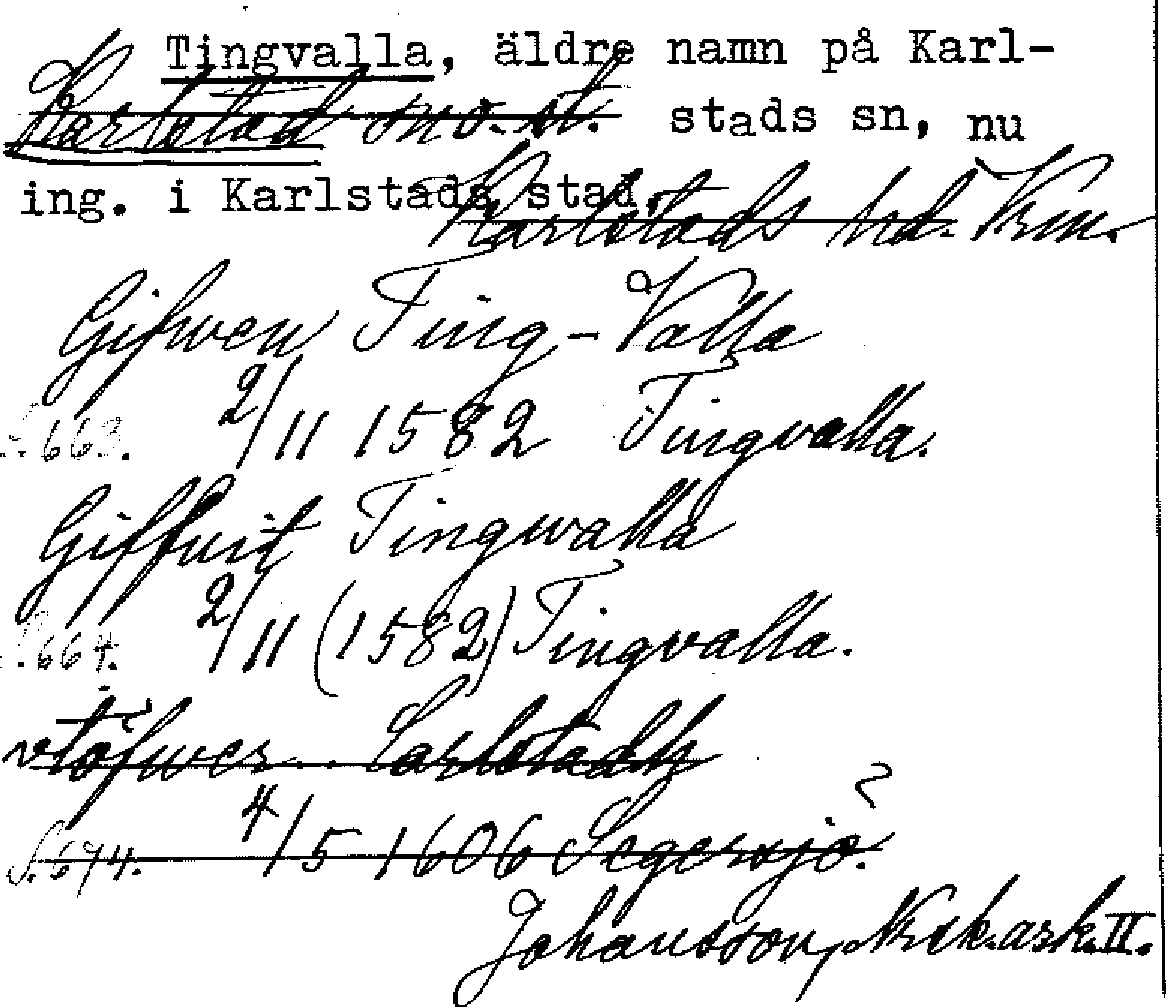 Tingvalla, äldre namn på Karl-
Karlstad sno. st. stads sn, nu
ing. i Karlstads stad.
Karlstads hd. Vrm.
Gifwen Ting-Valla
S. 663. 2/11 1582 Tingvalla.
Giffuit Tingwalla
S. 664. 2/11 (1582) Tingvalla.
vtöfwer.. Carlstadh
S. 674. 4/5 1606 Segersjö?
Johansson, Nor. ark. II.